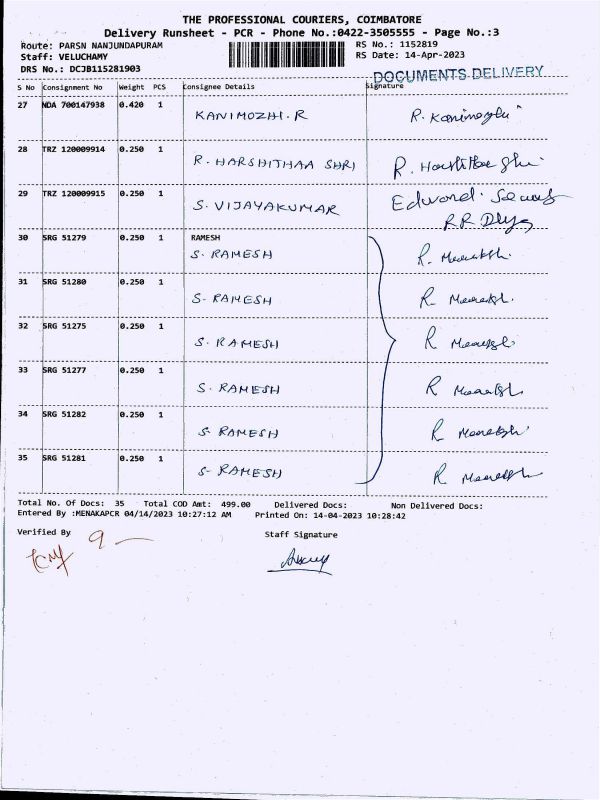 THE PROFESSIONAL COURIERS, COIMBATORE
Delivery Runsheet - PCR - Phone No.:0422-3505555 - Page No.:3
Route: PARSN NANJUNDAPURAM RS No.: 1152819
Staff: VELUCHAMY RS Date: 14-Apr-2023
DRS No.: DCJB115281903
DOCUMENTS DELIVERY
S No Consignment No Weight PCS Consignee Details Signature
27 NDA 700147938 0.420 1 KANIMOZHI.R R. Kanimozhi
28 TRZ 120009914 0.250 1 R. HARSHITHAA SHRI R.
29 TRZ 120009915 0.250 1 S. VIJAYAKUMAR Edword.
30 SRG 51279 0.250 1 RAMESH
S. RAMESH R.
31 SRG 51280 0.250 1 S. RAMESH R
32 SRG 51275 0.250 1 S. RAMESH R
33 SRG 51277 0.250 1 S. RAMESH R
34 SRG 51282 0.250 1 S. RAMESH R
35 SRG 51281 0.250 1 S. RAMESH R
Total No. Of Docs: 35 Total COD Amt: 499.00 Delivered Docs: Non Delivered Docs:
Entered By :MENAKAPCR 04/14/2023 10:27:12 AM Printed On: 14-04-2023 10:28:42
Verified By 9 Staff Signature